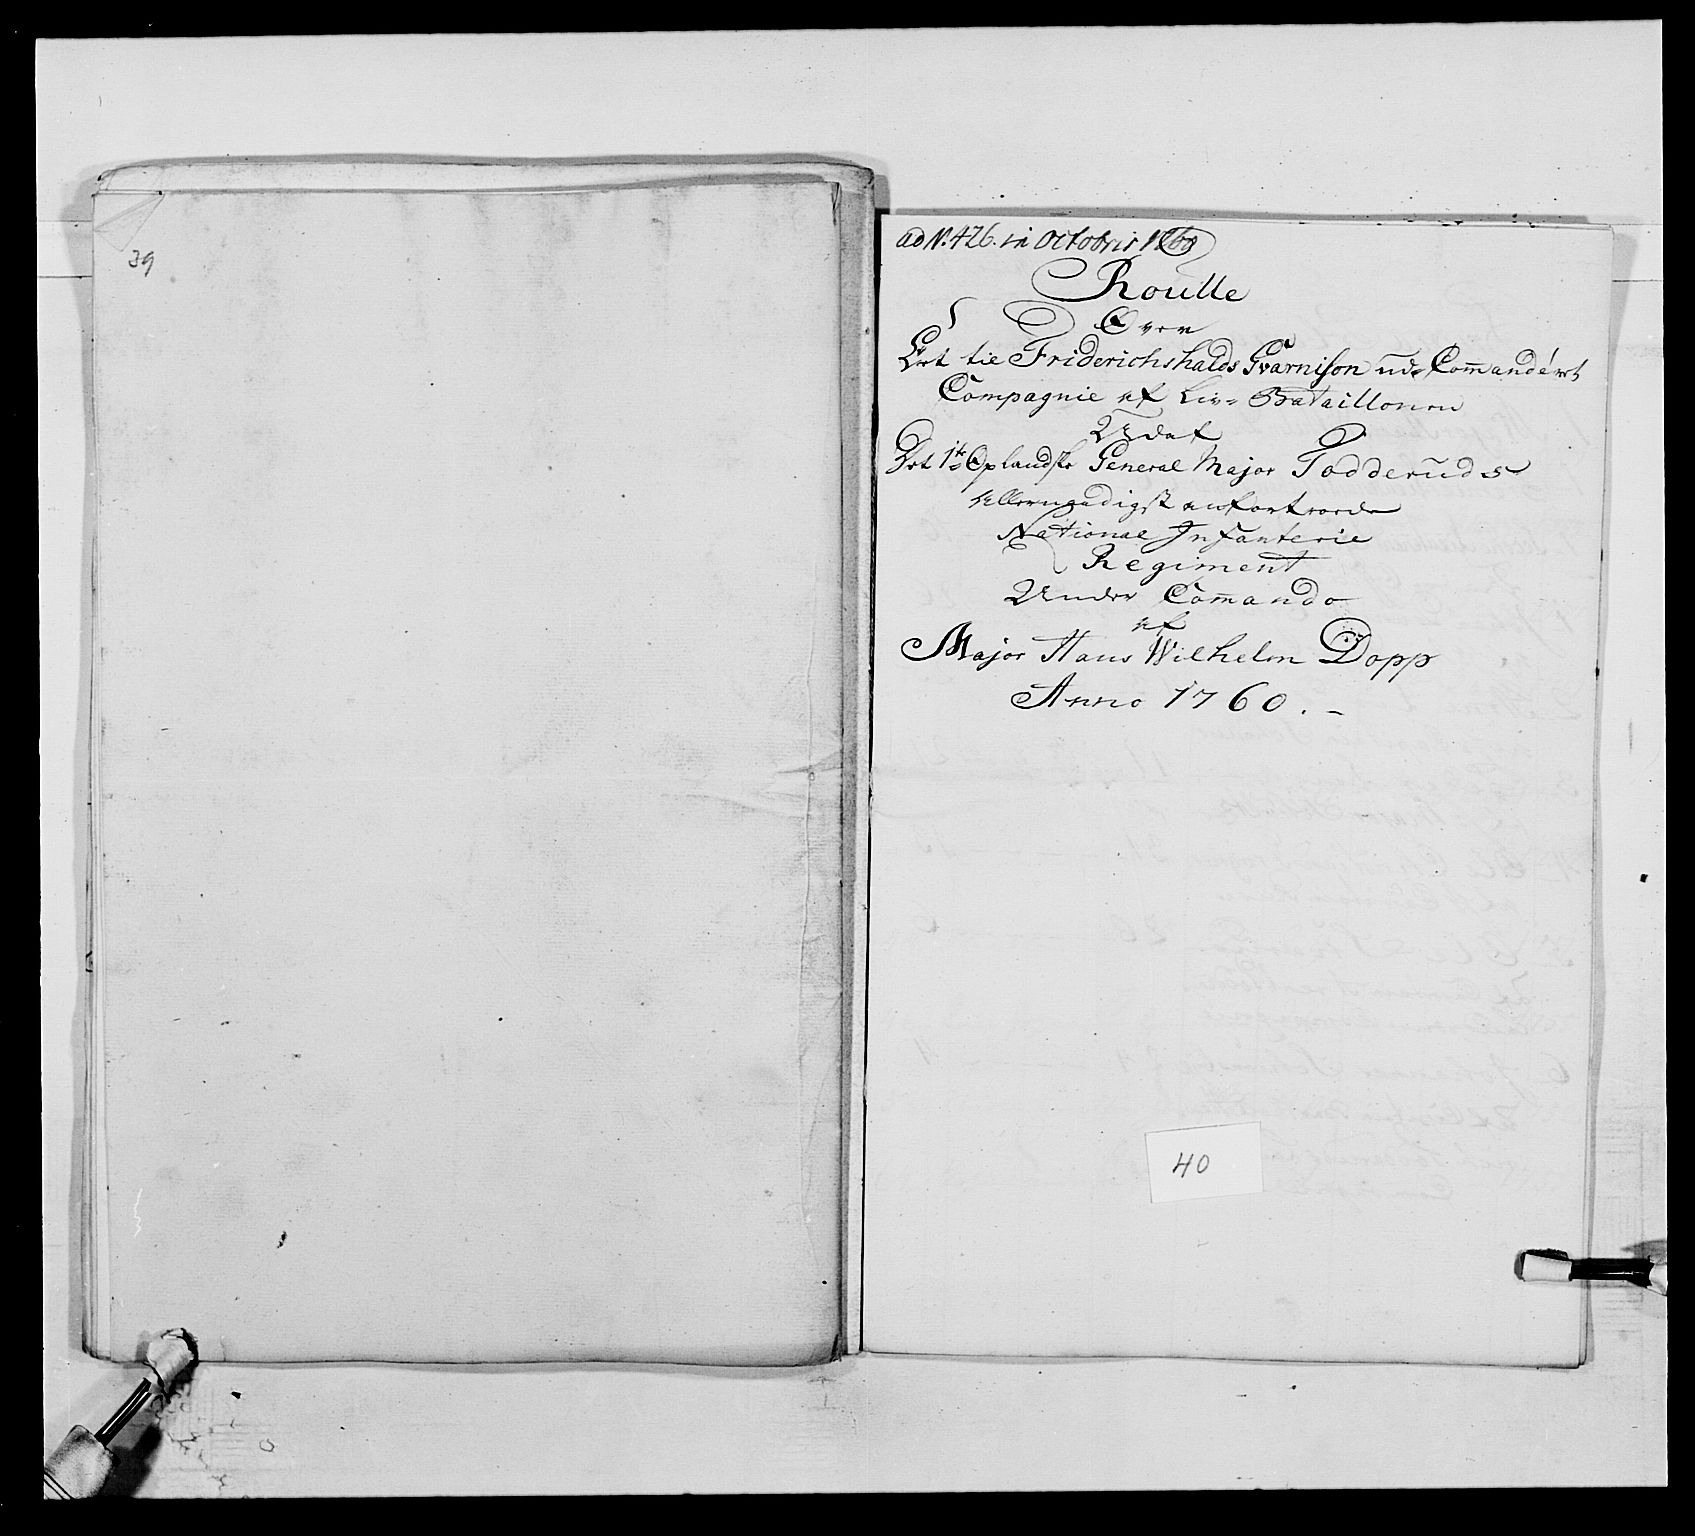 39
ad N. 426. in Octobris 1760
Roulle
Over
Det til Friderichshalds Gvarnison ud Commandert
Compagnie af Liv= Bataillonen
Udaf
Det 1te Oplandske General Major Todderuds
Allernaadigst anfortroede
National Infanterie
Regiment
Under Commando
af
Major Hans Wilhelm Döpp
Anno 1760. –
40